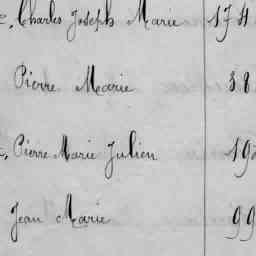 Charles Joseph Marie 174
Pierre Marie 38
Pierre Marie Julien 19
Jean Marie 99